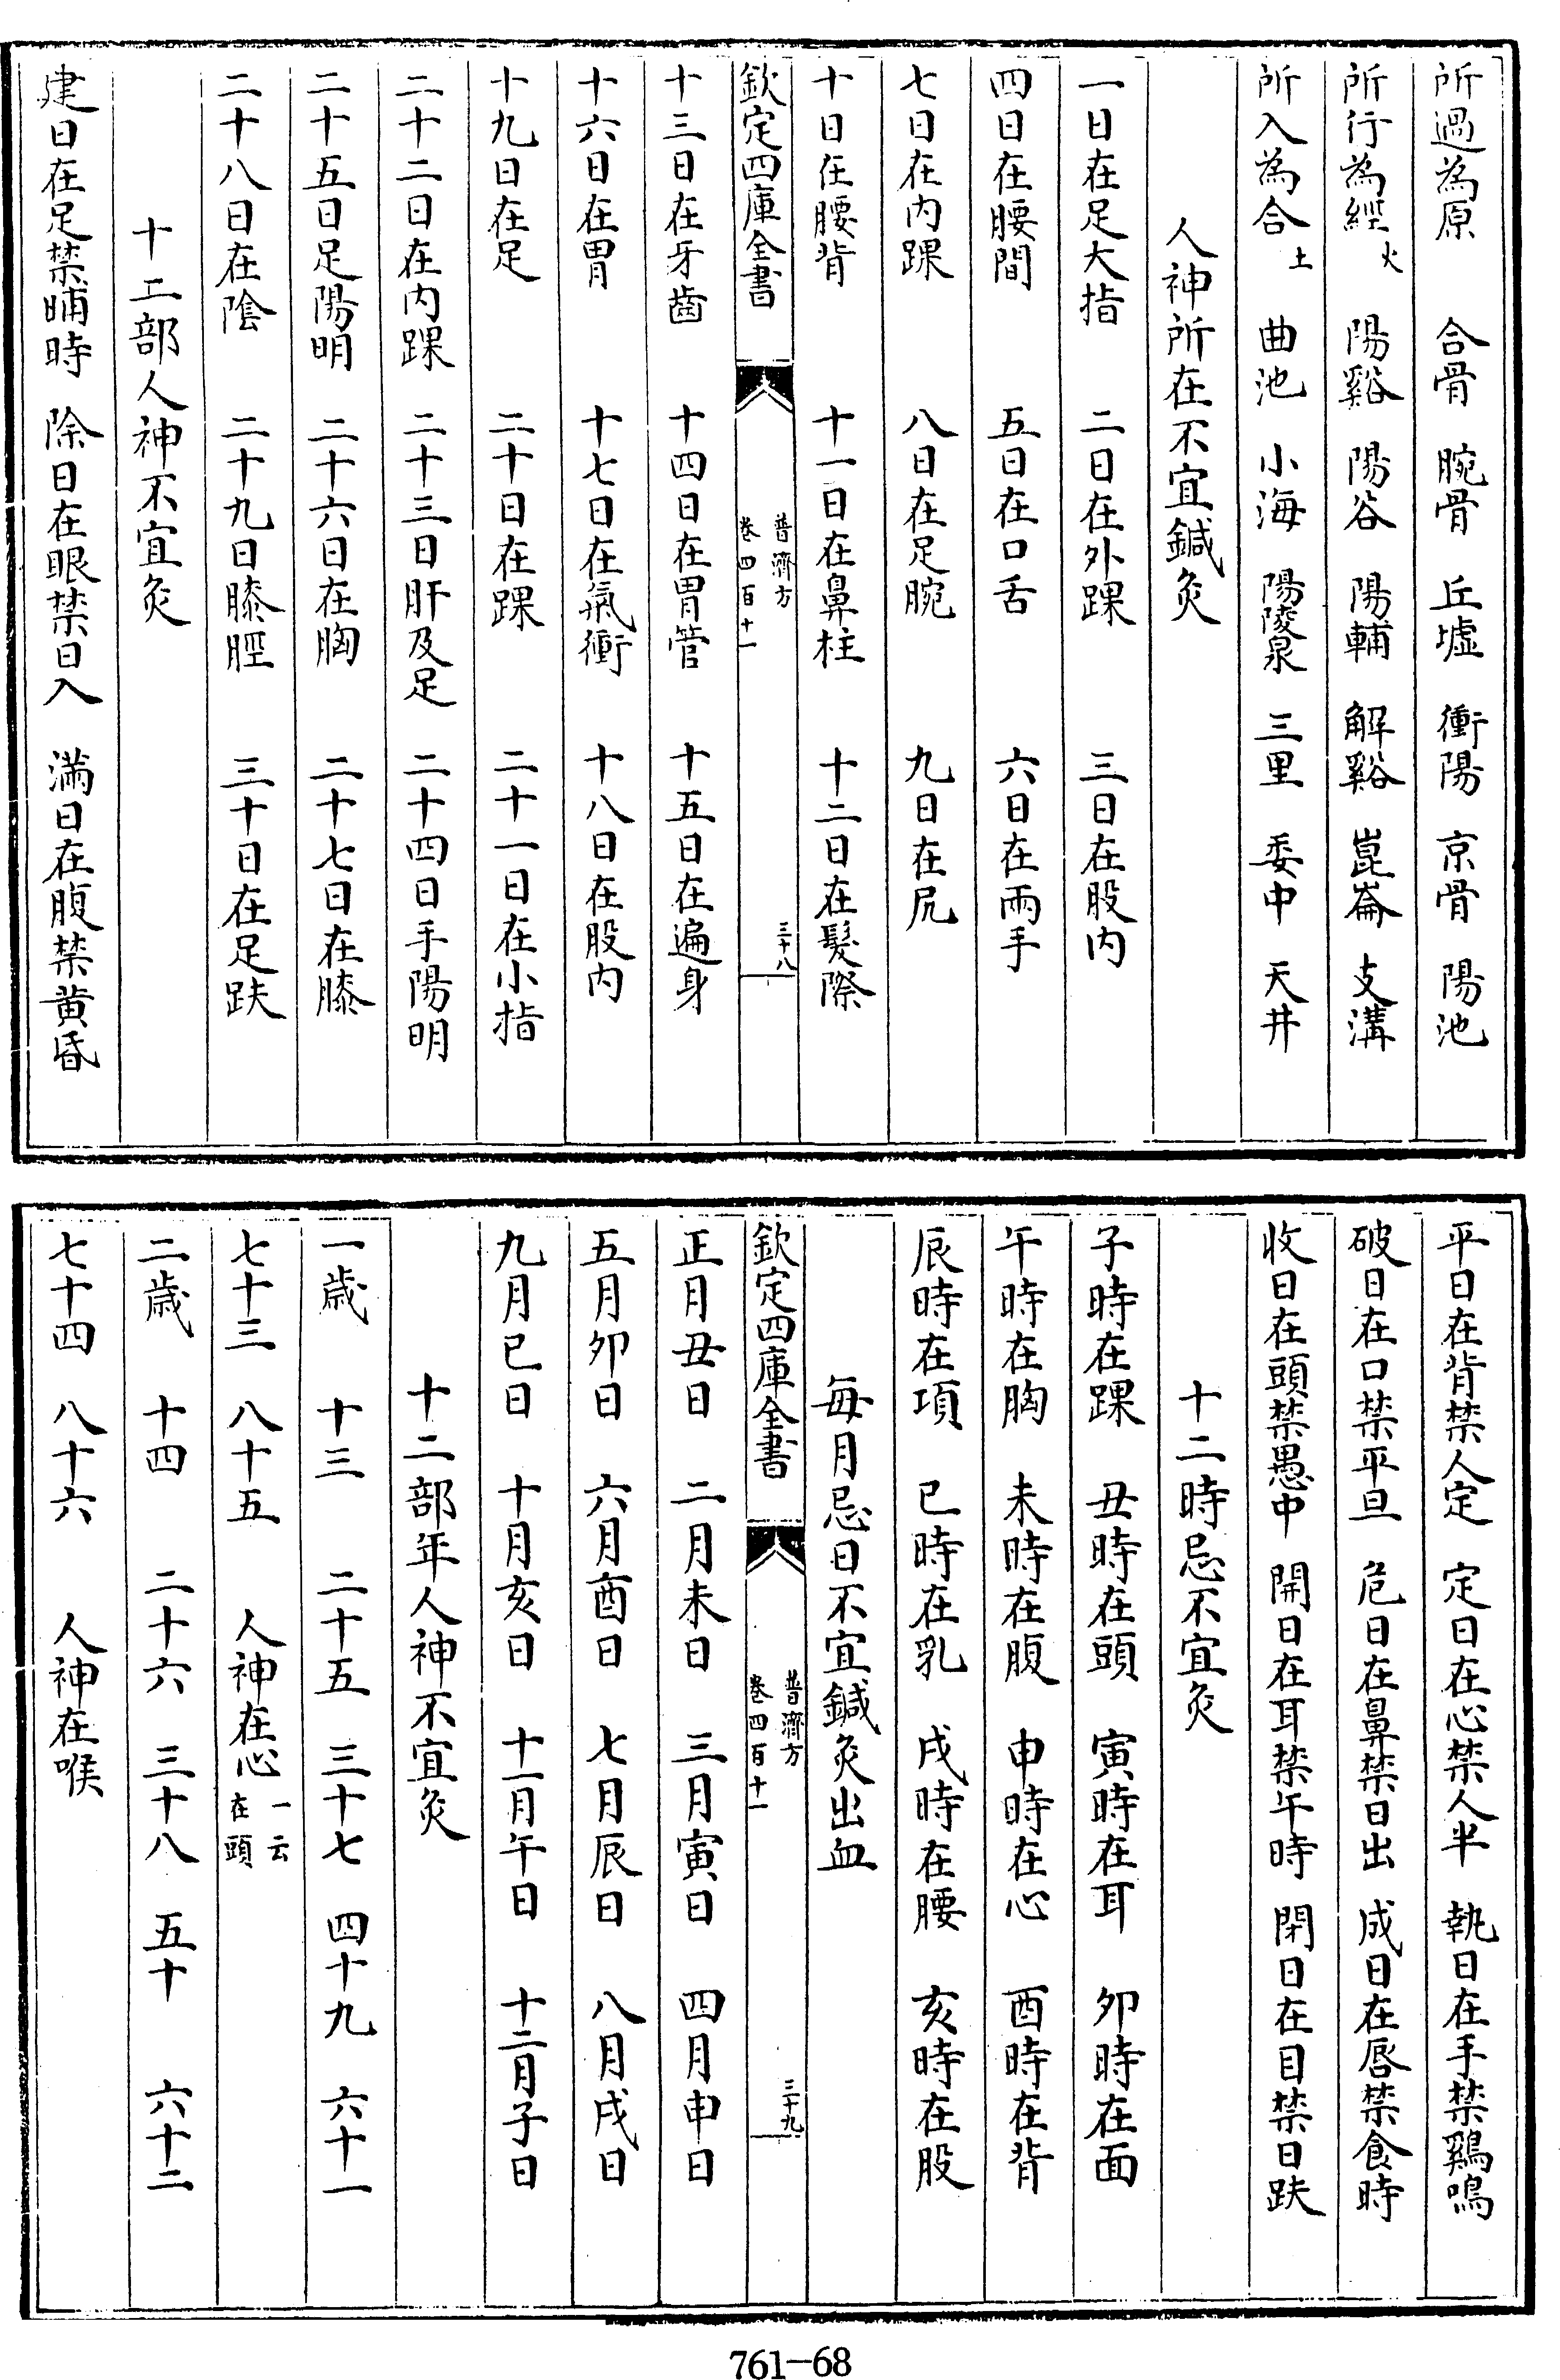 所過為原　合骨　腕骨　丘墟　衝陽　京骨　陽池
所行為經火　陽谿　陽谷　陽輔　解谿　崑崙　支溝
所入為合土　曲池　小海　陽陵泉　三里　委中　天井
人神所在不宜鍼灸
一日在足大指　二日在外踝　三日在股内
四日在腰間　五日在口舌　六日在兩手
七日在内踝　八日在足腕　九日在尻
十日在腰背　十一日在鼻柱　十二日在髮際
欽定四庫全書　普濟方　卷四百十一　三十八
十三日在牙齒　十四日在胃管　十五日在遍身
十六日在胃　十七日在氣衝　十八日在股内
十九日在足　二十日在踝　二十一日在小指
二十二日在内踝　二十三日肝及足　二十四日手陽明
二十五日足陽明　二十六日在胸　二十七日在膝
二十八日在隂　二十九日膝脛　三十日在足趺
十二部人神不宜灸
建日在足禁晡時　除日在眼禁日入　滿日在腹禁黄昏
平日在背禁人定　定日在心禁人半　執日在手禁鷄鳴
破日在口禁平旦　危日在鼻禁日出　成日在唇禁食時
收日在頭禁愚中　開日在耳禁午時　閉日在目禁日趺
十二時忌不宜灸
子時在踝　丑時在頭　寅時在耳　卯時在面
午時在胸　未時在腹　申時在心　酉時在背
辰時在項　巳時在乳　戌時在腰　亥時在股
每月忌日不宜鍼灸出血
欽定四庫全書　普濟方　卷四百十一　三十九
正月丑日　二月未日　三月寅日　四月申日
五月卯日　六月酉日　七月辰日　八月戌日
九月巳日　十月亥日　十一月午日　十二月子日
十二部年人神不宜灸
一歲　十三　二十五　三十七　四十九　六十一
七十三　八十五　人神在心一云在頭
二歲　十四　二十六　三十八　五十　六十二
七十四　八十六　人神在喉
761—68